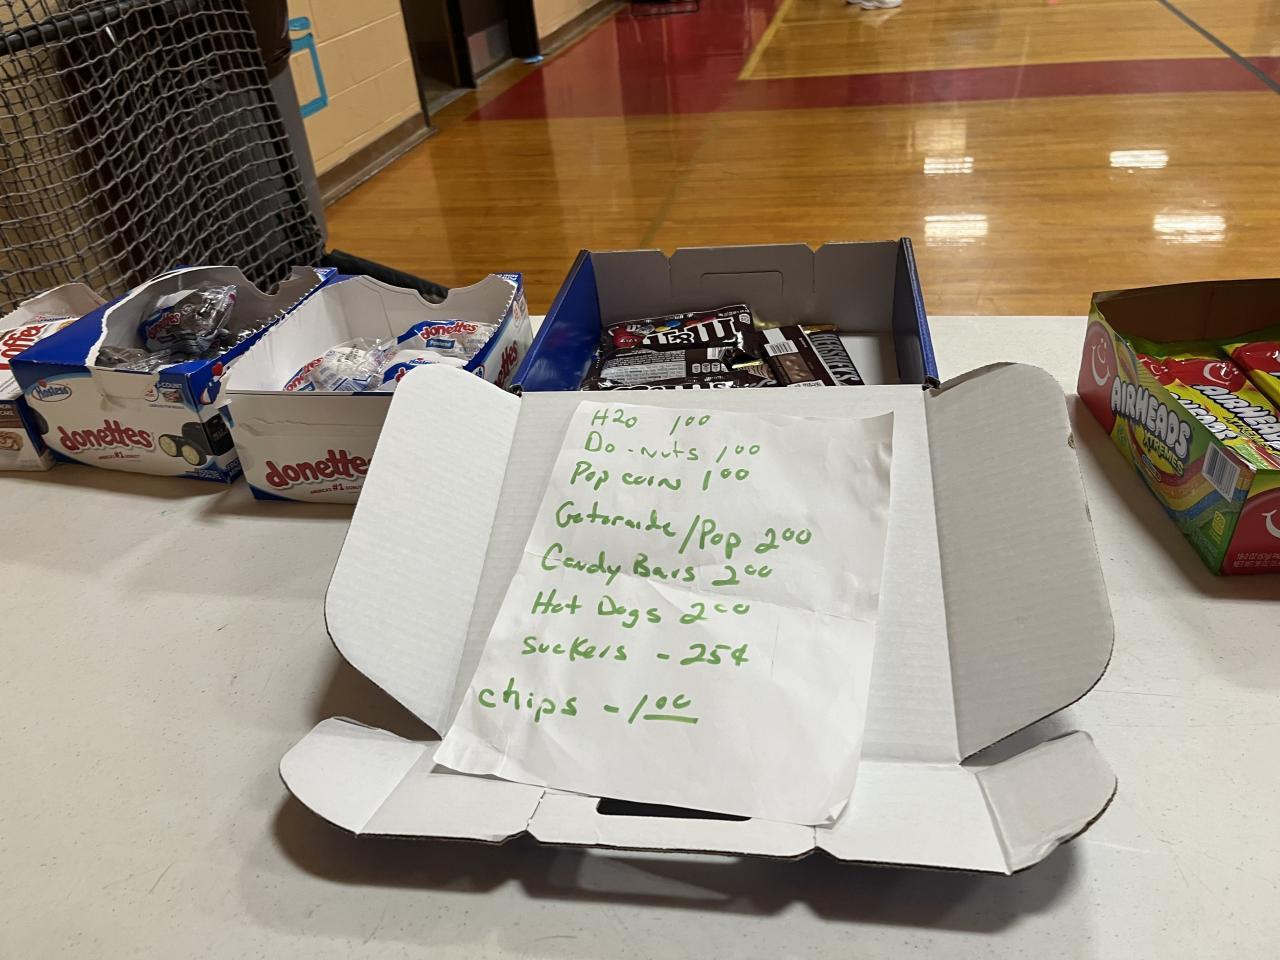 Hostess
donettes
AMERICA'S #1 DONUT
donettes
AMERICA'S #1 DONUT
donettes
M&M's
HERSHEY'S
AIRHEADS
XTREMES
AIRHEADS
XTREMES
H2O 1.00
Do-nuts 1.00
Pop corn 1.00
Gatoraide/Pop 2.00
Candy Bars 2.00
Hot Dogs 2.00
Suckers - 25¢
chips - 1.00